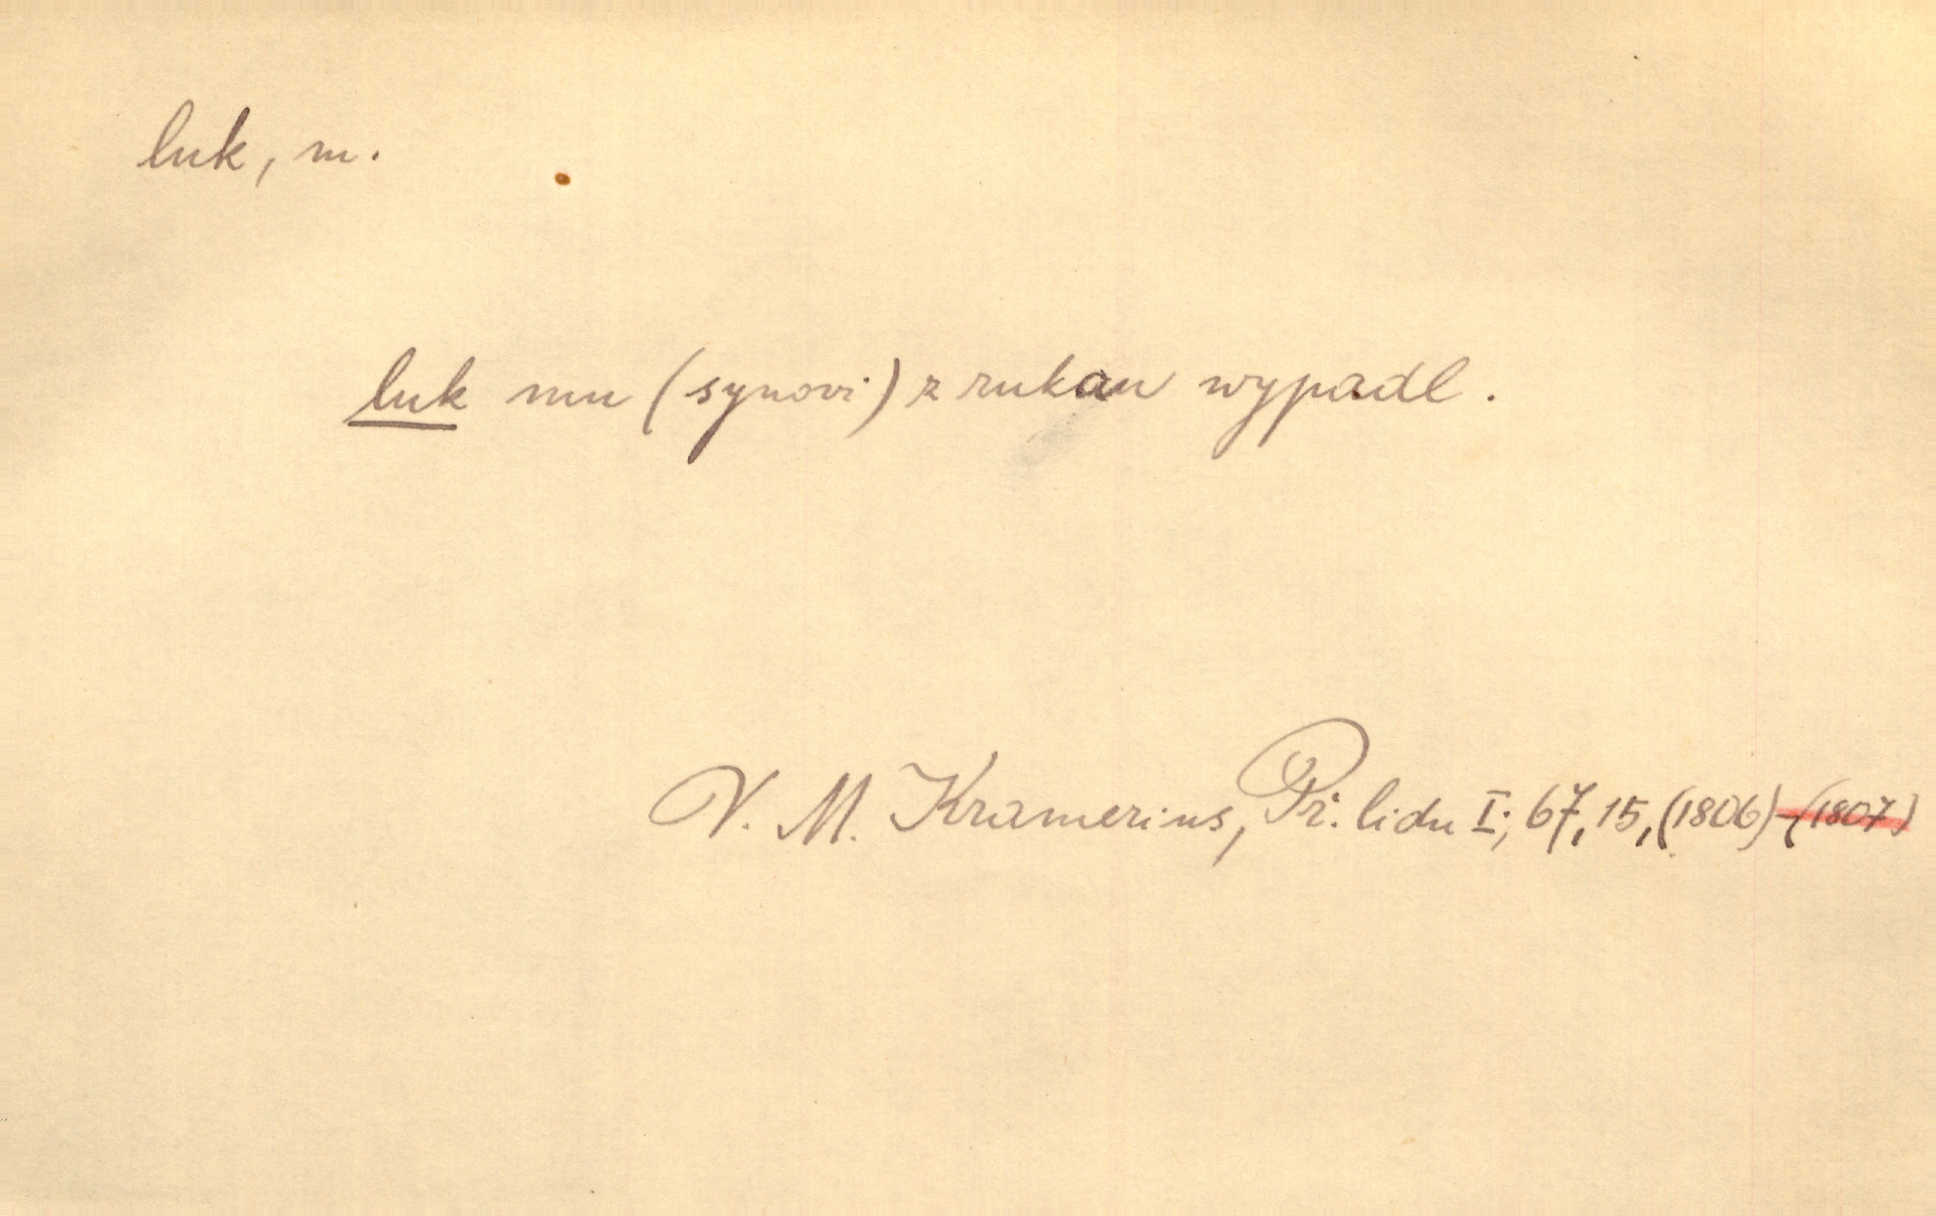 luk, m.
luk mu (synovi) z rukau wypadl.
V. M. Kramerius, Př. lidu I; 67, 15, (1806) - (1807)